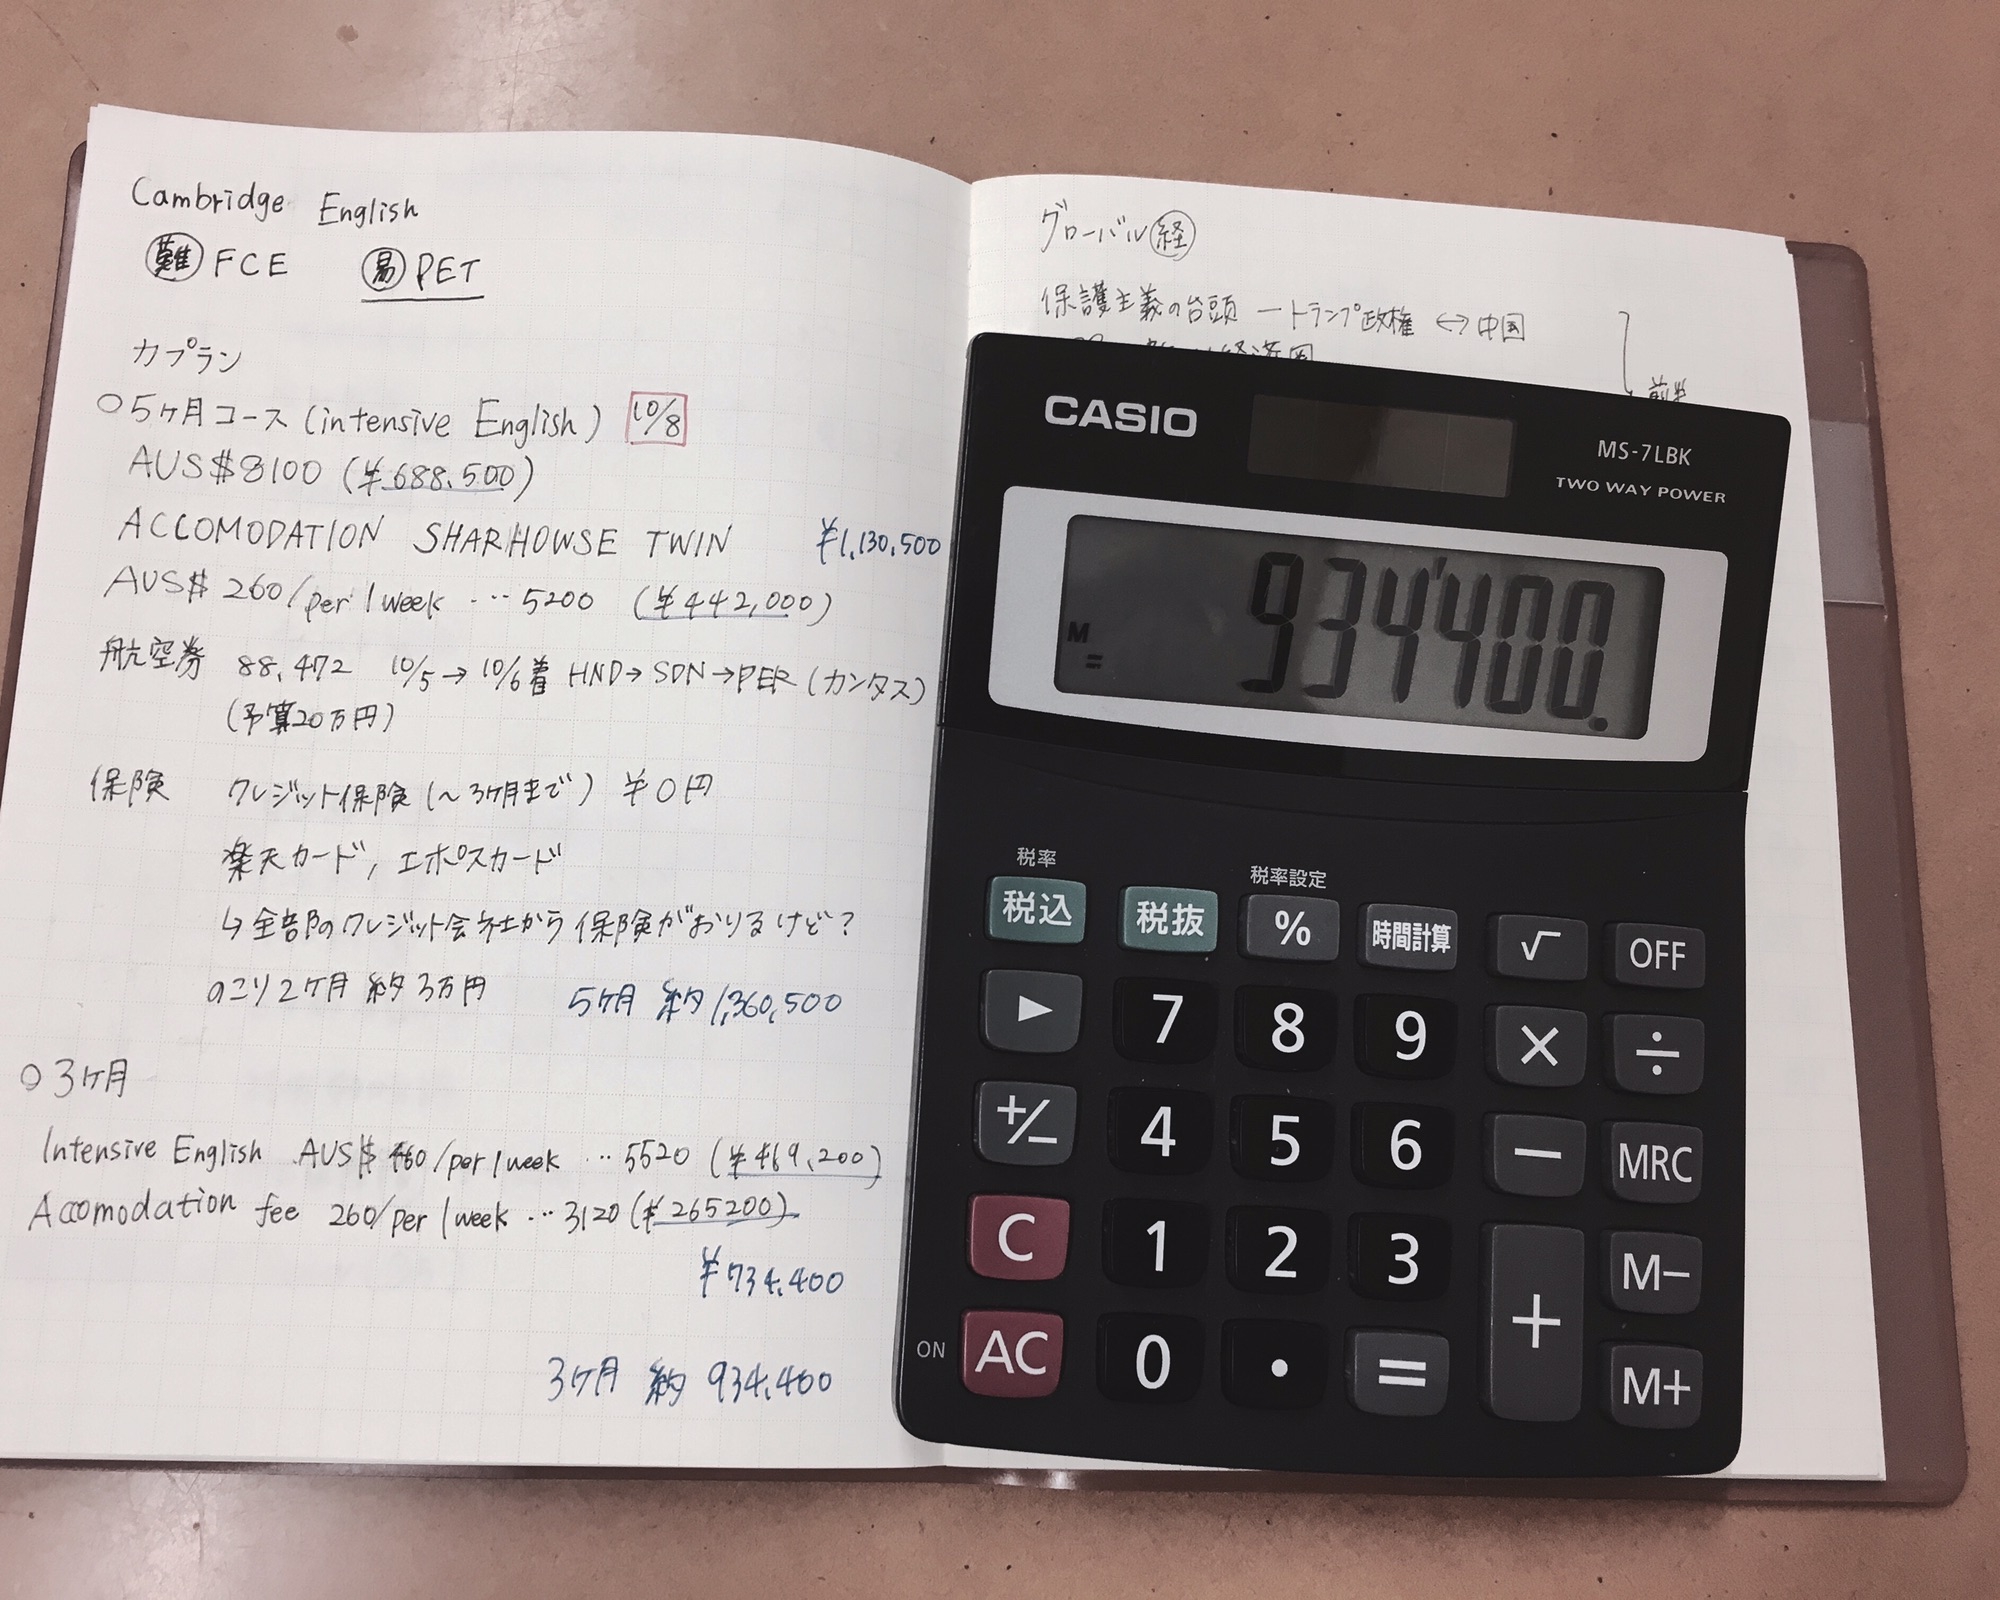 Cambridge English
難 FCE 易 PET
カプラン
○5ヶ月コース (intensive English) 10/8
AUS$8100 (¥688.500)
ACCOMODATION SHARHOWSE TWIN ¥1,130,500
AUS$ 260/per 1week … 5200 (¥442,000)
航空券 88,472 10/5→10/6着 HND→SDN→PER (カンタス)
(予算20万円)
保険 クレジット保険 (~3ヶ月まで) ¥0円
楽天カード, エポスカード
↳全部のクレジット会社から保険がおりるけど?
のこり2ヶ月 約3万円 5ヶ月 約1,360,500
○3ヶ月
Intensive English AUS$ 460/per 1week … 5520 (¥469,200)
Accomodation fee 260/per 1week … 3120 (¥265200)
¥734,400
3ヶ月 約 934,400
グローバル経
保護主義の台頭 ートランプ政権 ↔ 中国
経済圏
前半
CASIO
MS-7LBK
TWO WAY POWER
M
=
934'400.
税率
税率設定
税込 税抜 % 時間計算 √ OFF
▶ 7 8 9 × ÷
+/− 4 5 6 − MRC
C 1 2 3 + M−
ON AC 0 • = M+